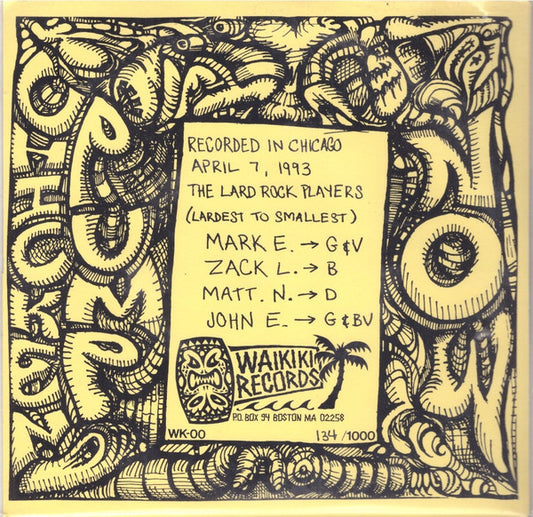 RECORDED IN CHICAGO
APRIL 7, 1993
THE LARD ROCK PLAYERS
(LARDEST TO SMALLEST)
MARK E. → G & V
ZACK L. → B
MATT. N. → D
JOHN E. → G & BV
WAIKIKI
RECORDS
P.O. BOX 94 BOSTON MA 02258
WK-00
134 /1000
NOW